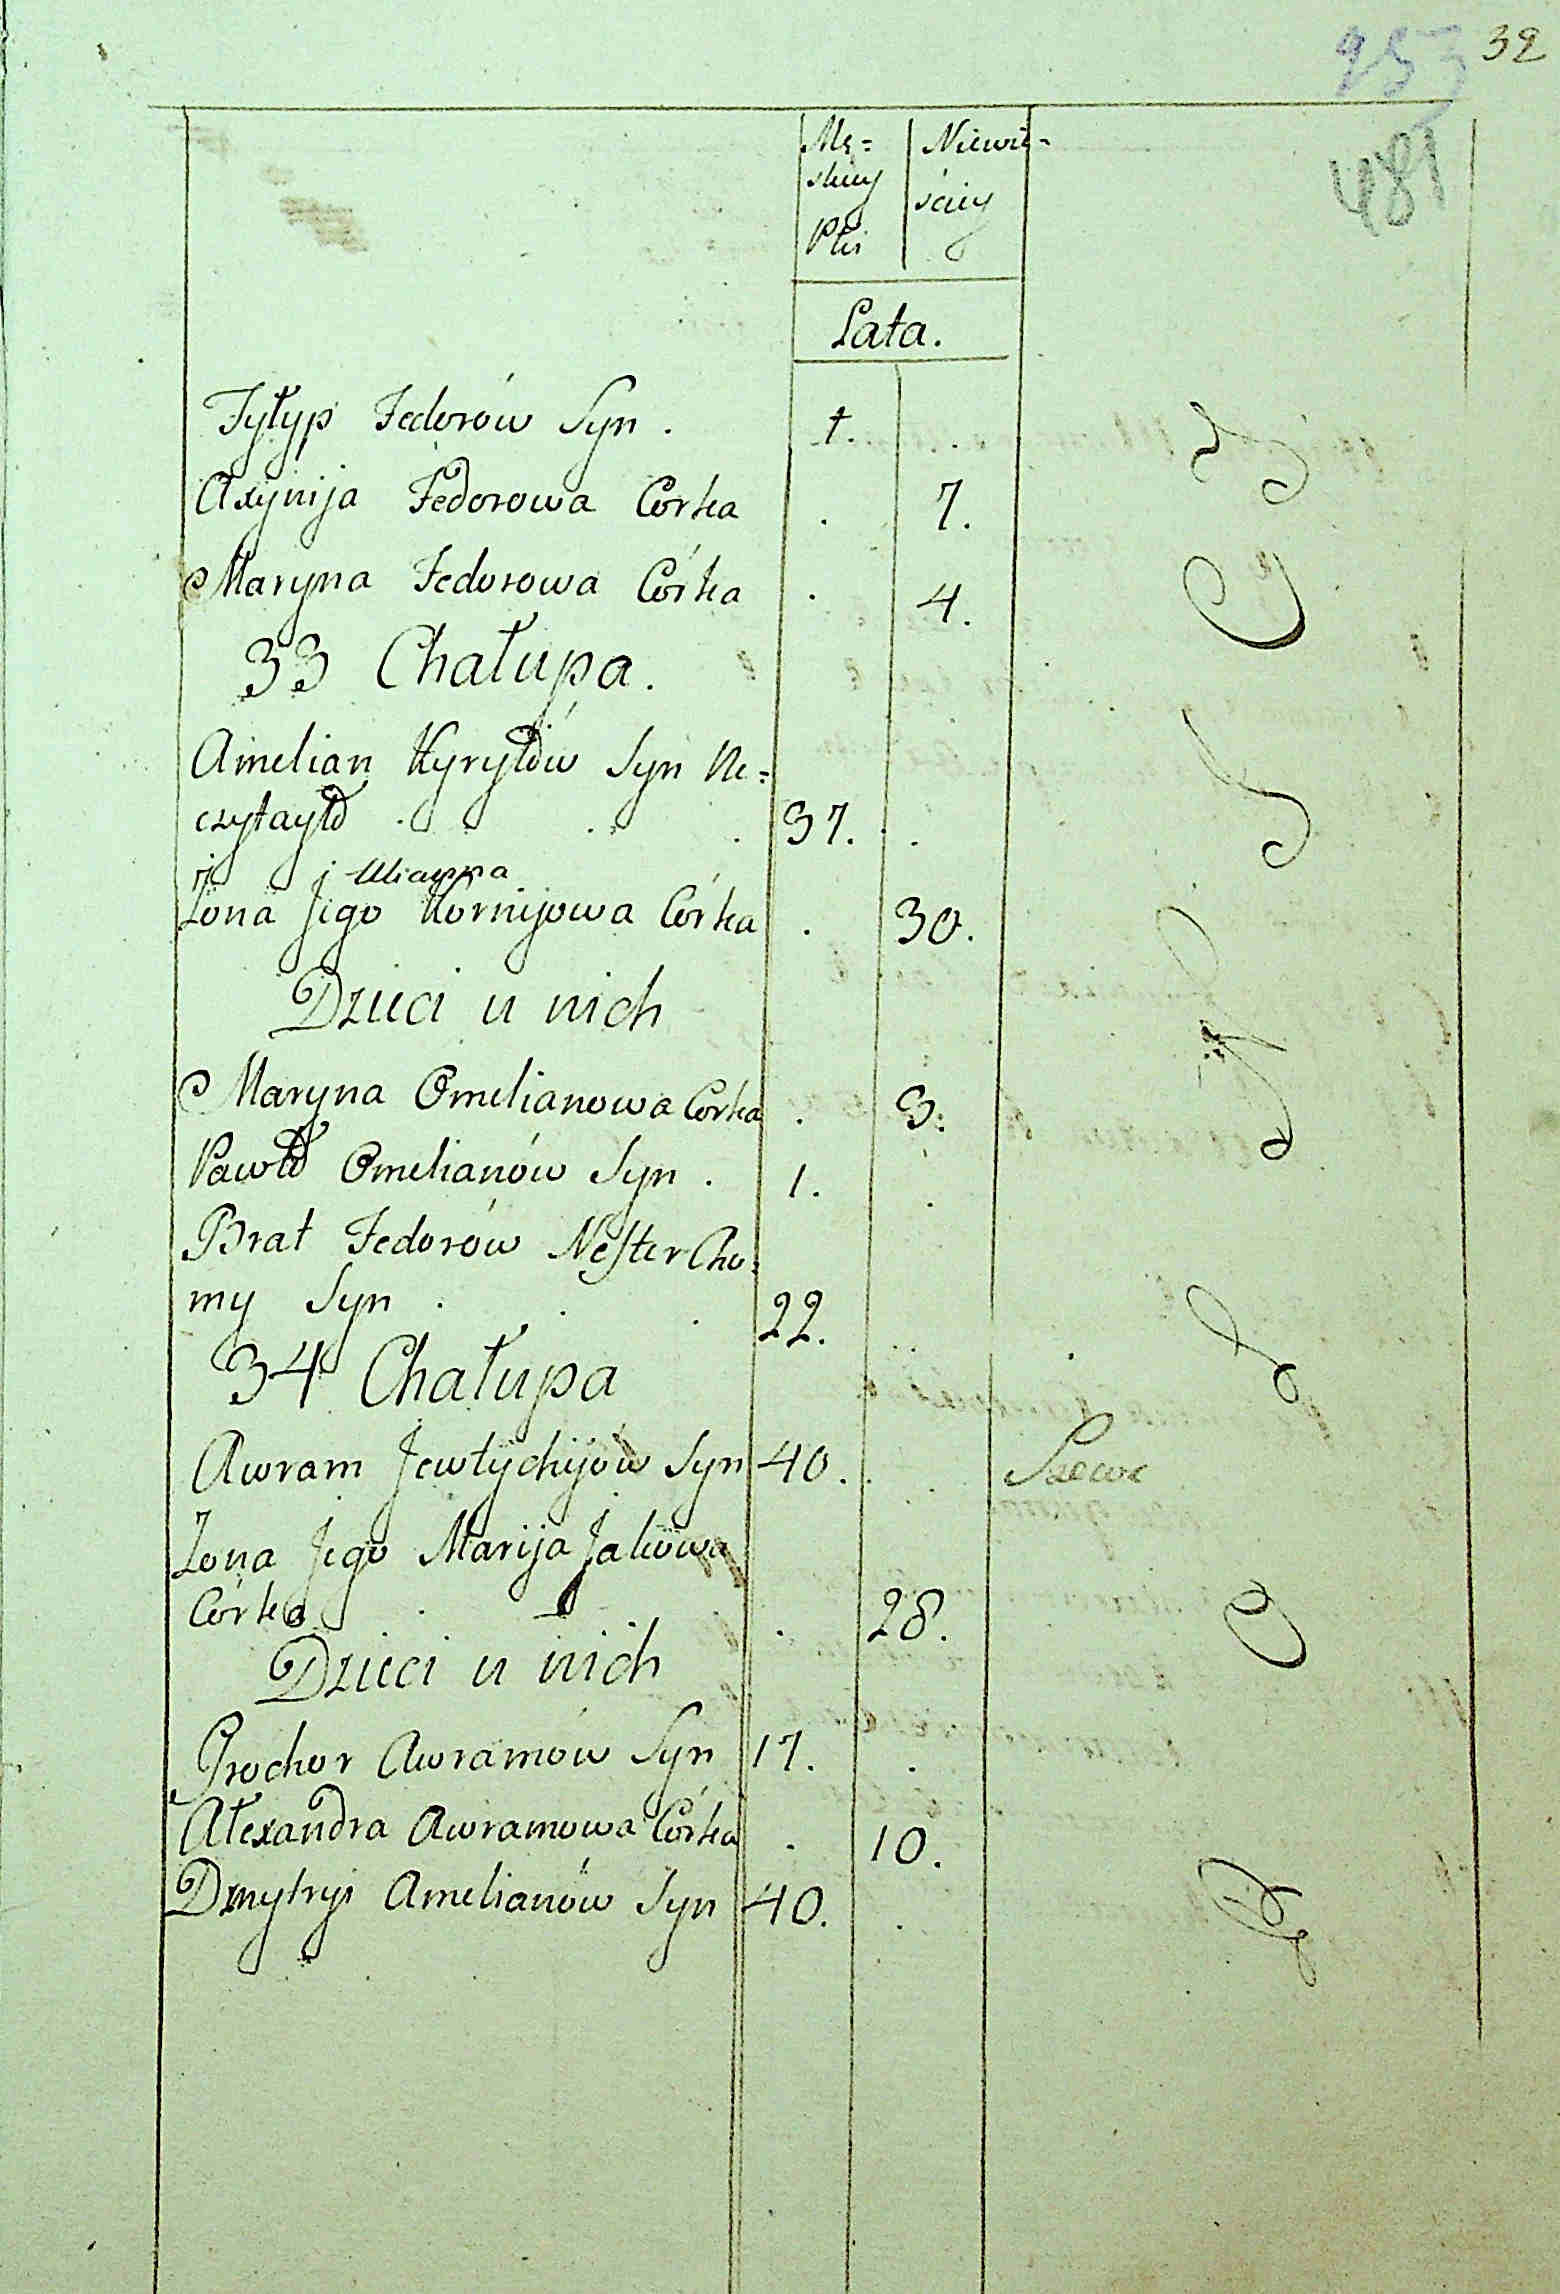 253 32
481
Mę= Niewie=
skiey ściey
Płci
Lata.
Fyłyp Fedorów Syn . 1. .
Axynija Fedorowa Corka . 7.
Maryna Fedorowa Córka . 4.
33 Chałupa.
Amelian Kyryłów Syn Ne=
czytayło . . . 37. .
Ulianna
Żona Jego Kornijowa Córka . 30.
Dzieci u nich
Maryna Omelianowa Corka . 3.
Pawło Omelianów Syn . 1. .
Brat Fedorów Nester Cho=
my Syn . . . 22.
34 Chałupa
Awram Jewtychijów Syn 40. . Szewc
Zona Jego Marija Jakowa
Córka . . 28.
Dzieci u nich
Prochor Awramów Syn 17. .
Alexandra Awramowa Córka . 10.
Dmytryi Amelianów Syn 40. .